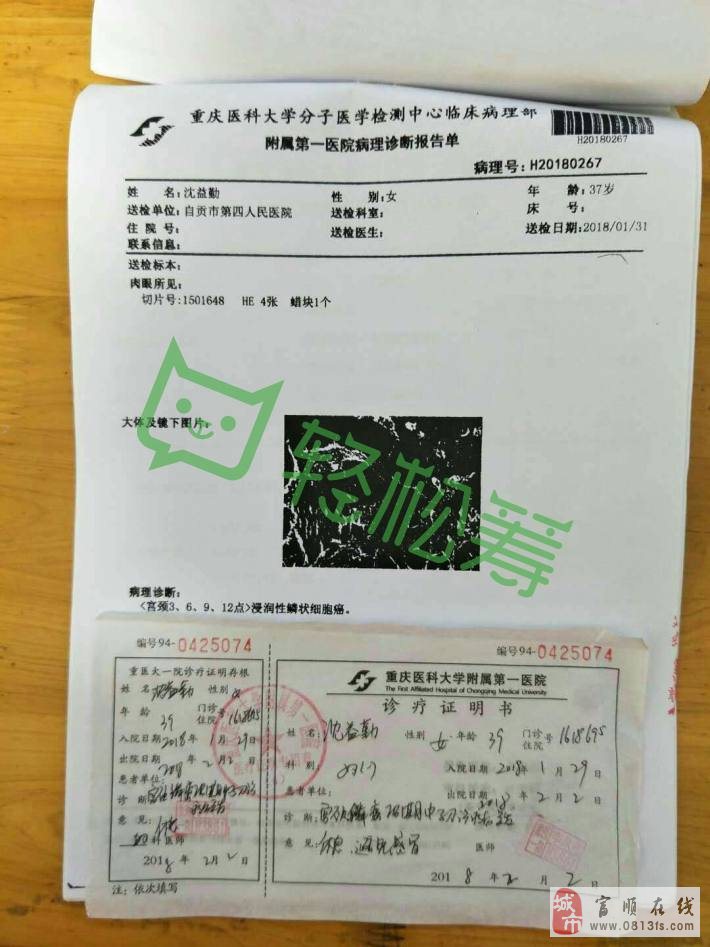 重庆医科大学分子医学检测中心临床病理部
附属第一医院病理诊断报告单
H20180267
病理号：H20180267
姓 名：沈益勤 性 别：女 年 龄：37岁
送检单位：自贡市第四人民医院 送检科室： 床 号：
住 院 号： 送检医生： 送检日期：2018/01/31
联系信息：
送检标本：
肉眼所见：
切片号：1501648 HE 4张 蜡块1个
大体及镜下图片：
轻松筹
病理诊断：
<宫颈3、6、9、12点>浸润性鳞状细胞癌。
编号94-0425074
重医大一院诊疗证明存根
姓 名 沈益勤 性别 女
年 龄 39 门诊 住院 号 1618695
入院日期 2018年1月29日
出院日期 2018年2月2日
患者单位：
诊 断
意 见： 休息
科 医师
2018年2月2日
注：依次填写
编号94-0425074
重庆医科大学附属第一医院
The First Affiliated Hospital of Chongqing Medical University
诊疗证明书
姓 名：沈益勤 性别 女 年龄 39 门诊 住院 号 1618695
科 别： 妇 入院日期 2018年1月29日
患者单位： 出院日期 2018年2月2日
诊 断：
意 见： 休息 避免感冒 医师
2018年2月2日
城市
富顺在线
www.0813fs.com